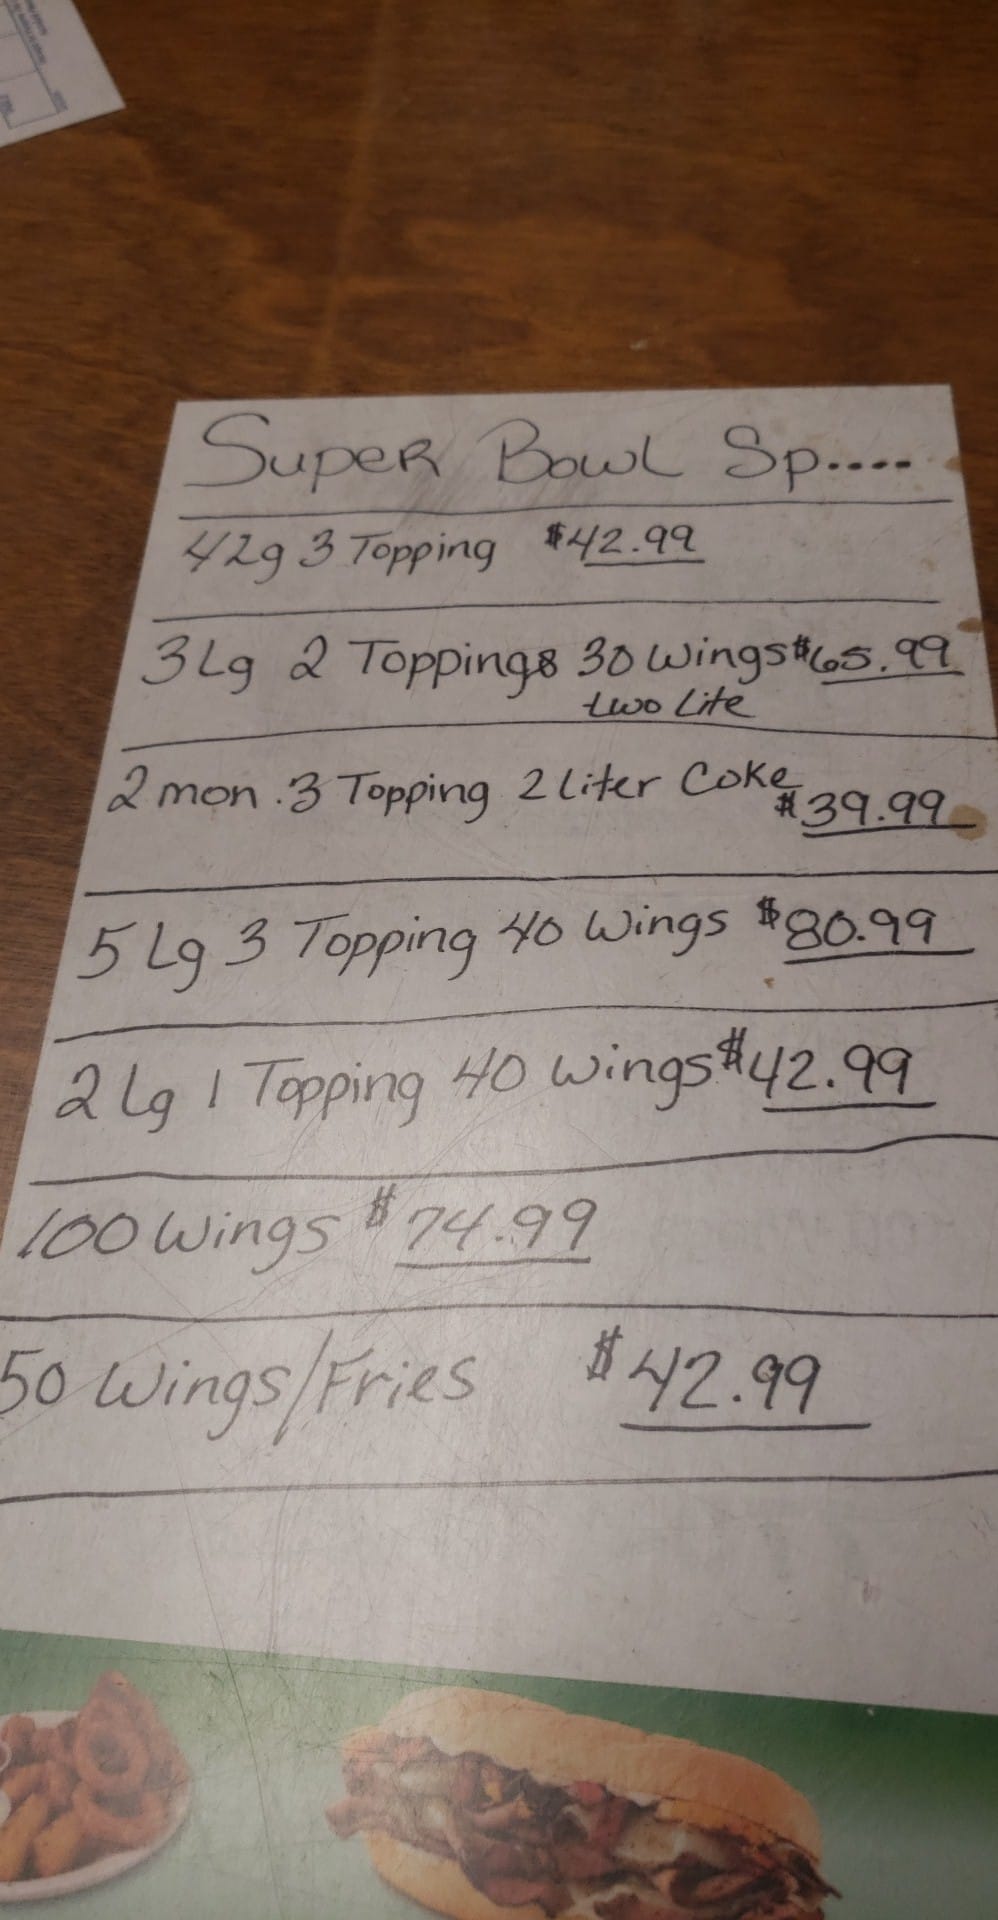 Super Bowl Sp....
4 Lg 3 Topping $42.99
3 Lg 2 Toppings 30 Wings $65.99
two Lite
2 mon. 3 Topping 2 Liter Coke
$39.99
5 Lg 3 Topping 40 Wings $80.99
2 Lg 1 Topping 40 Wings $42.99
100 Wings $74.99
50 Wings/Fries $42.99